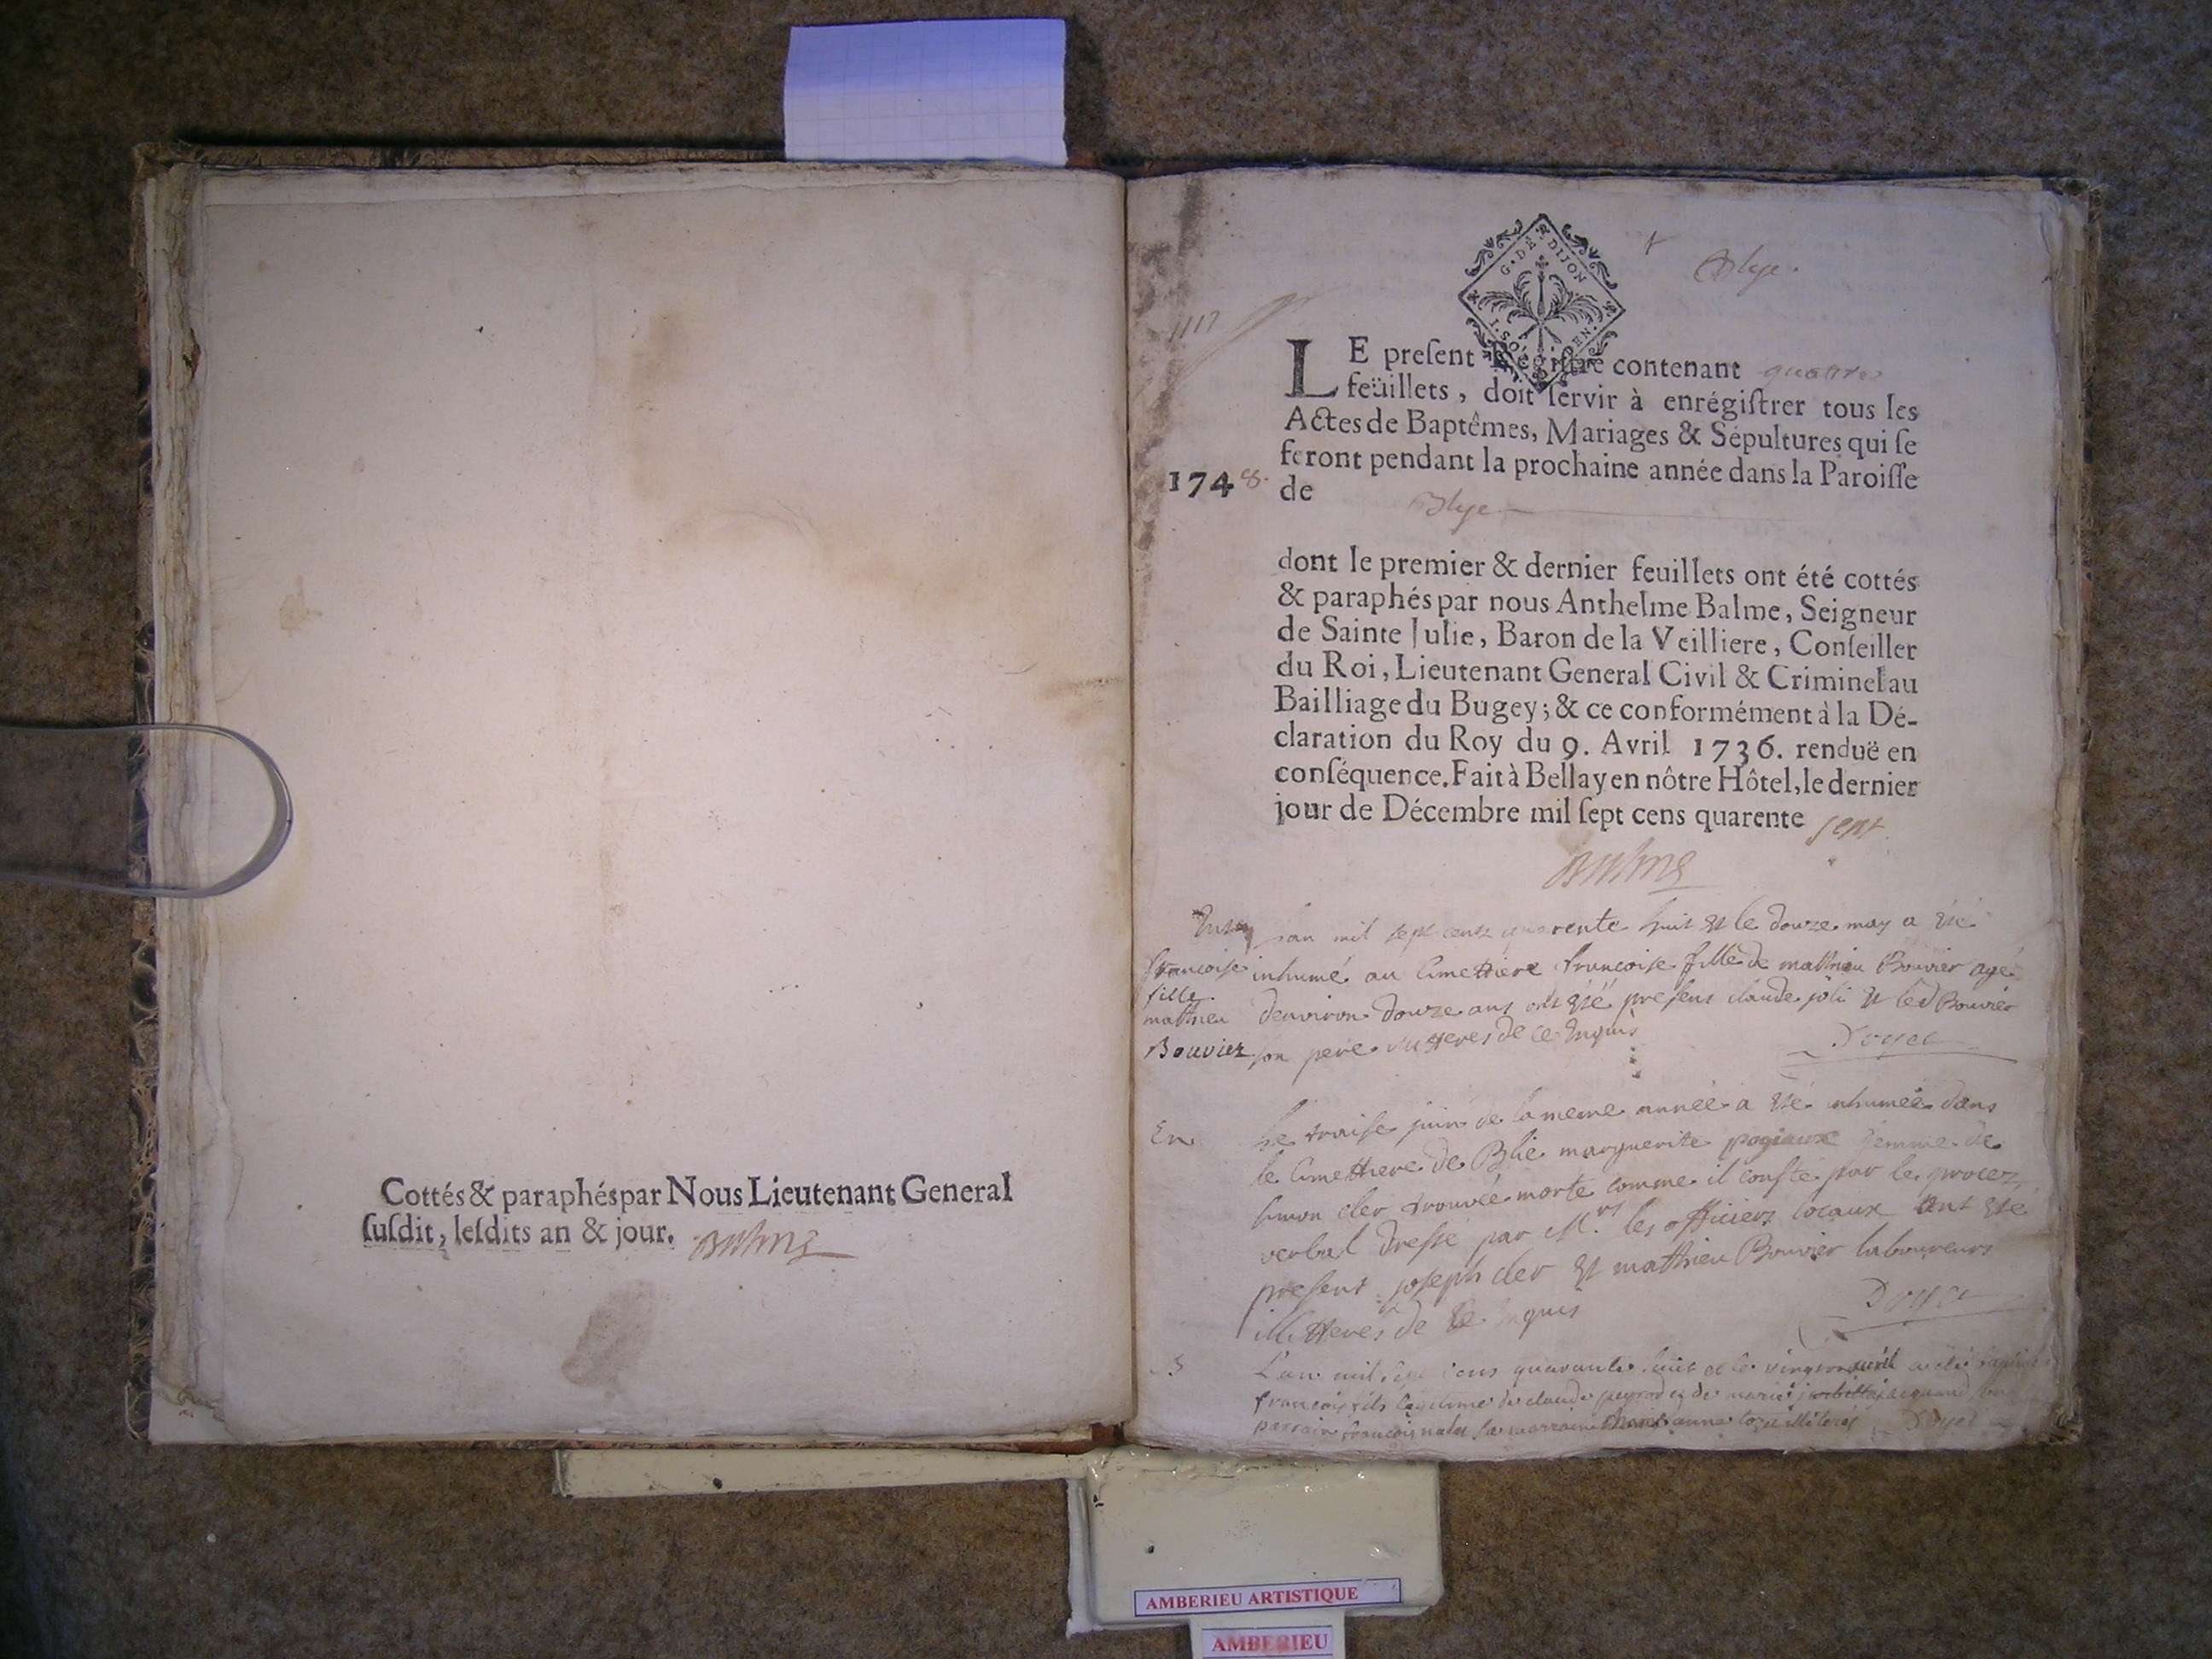 Cottés & paraphés par Nous Lieutenant General
ſuſdit, leſdits an & jour. Balme
G. DE DIJON
Blye.
1117
LE preſent Régiſtre contenant quattre
feüillets, doit ſervir à enrégiſtrer tous les
Actes de Baptêmes, Mariages & Sépultures qui ſe
feront pendant la prochaine année dans la Paroiſſe
1748. de Blye
dont le premier & dernier feuillets ont été cottés
& paraphés par nous Anthelme Balme, Seigneur
de Sainte Julie, Baron de la Veilliere, Conſeiller
du Roi, Lieutenant General Civil & Criminel au
Bailliage du Bugey; & ce conformément à la Dé-
claration du Roy du 9. Avril 1736. renduë en
conſéquence. Fait à Bellay en nôtre Hôtel, le dernier
jour de Décembre mil ſept cens quarente sept
Balme
lan mil sept cents quarente huit et le douze may a été
francoise
fille
mathieu
Bouvier
inhumé au Cimettiere francoise fille de mathieu Bouvier agé
denviron douze ans ont été presens claude joli et led Bouvier
son pere illitteres de ce enquis
Doyet
En
le traise juin de la meme année a été inhumée dans
le Cimettiere de Blie marguerite femme de
simon cler trouvée morte comme il conste par le procez
verbal dressé par M.rs les officiers locaux ont été
present joseph cler et mathieu Bouvier laboureurs
illitteres de ce enquis
Doyet
L'an mil sept cens quarante huit et le a été
francois fils légitime de claude et de marie
parrain francois la marraine anne illiterés Doyet
AMBERIEU ARTISTIQUE
AMBERIEU